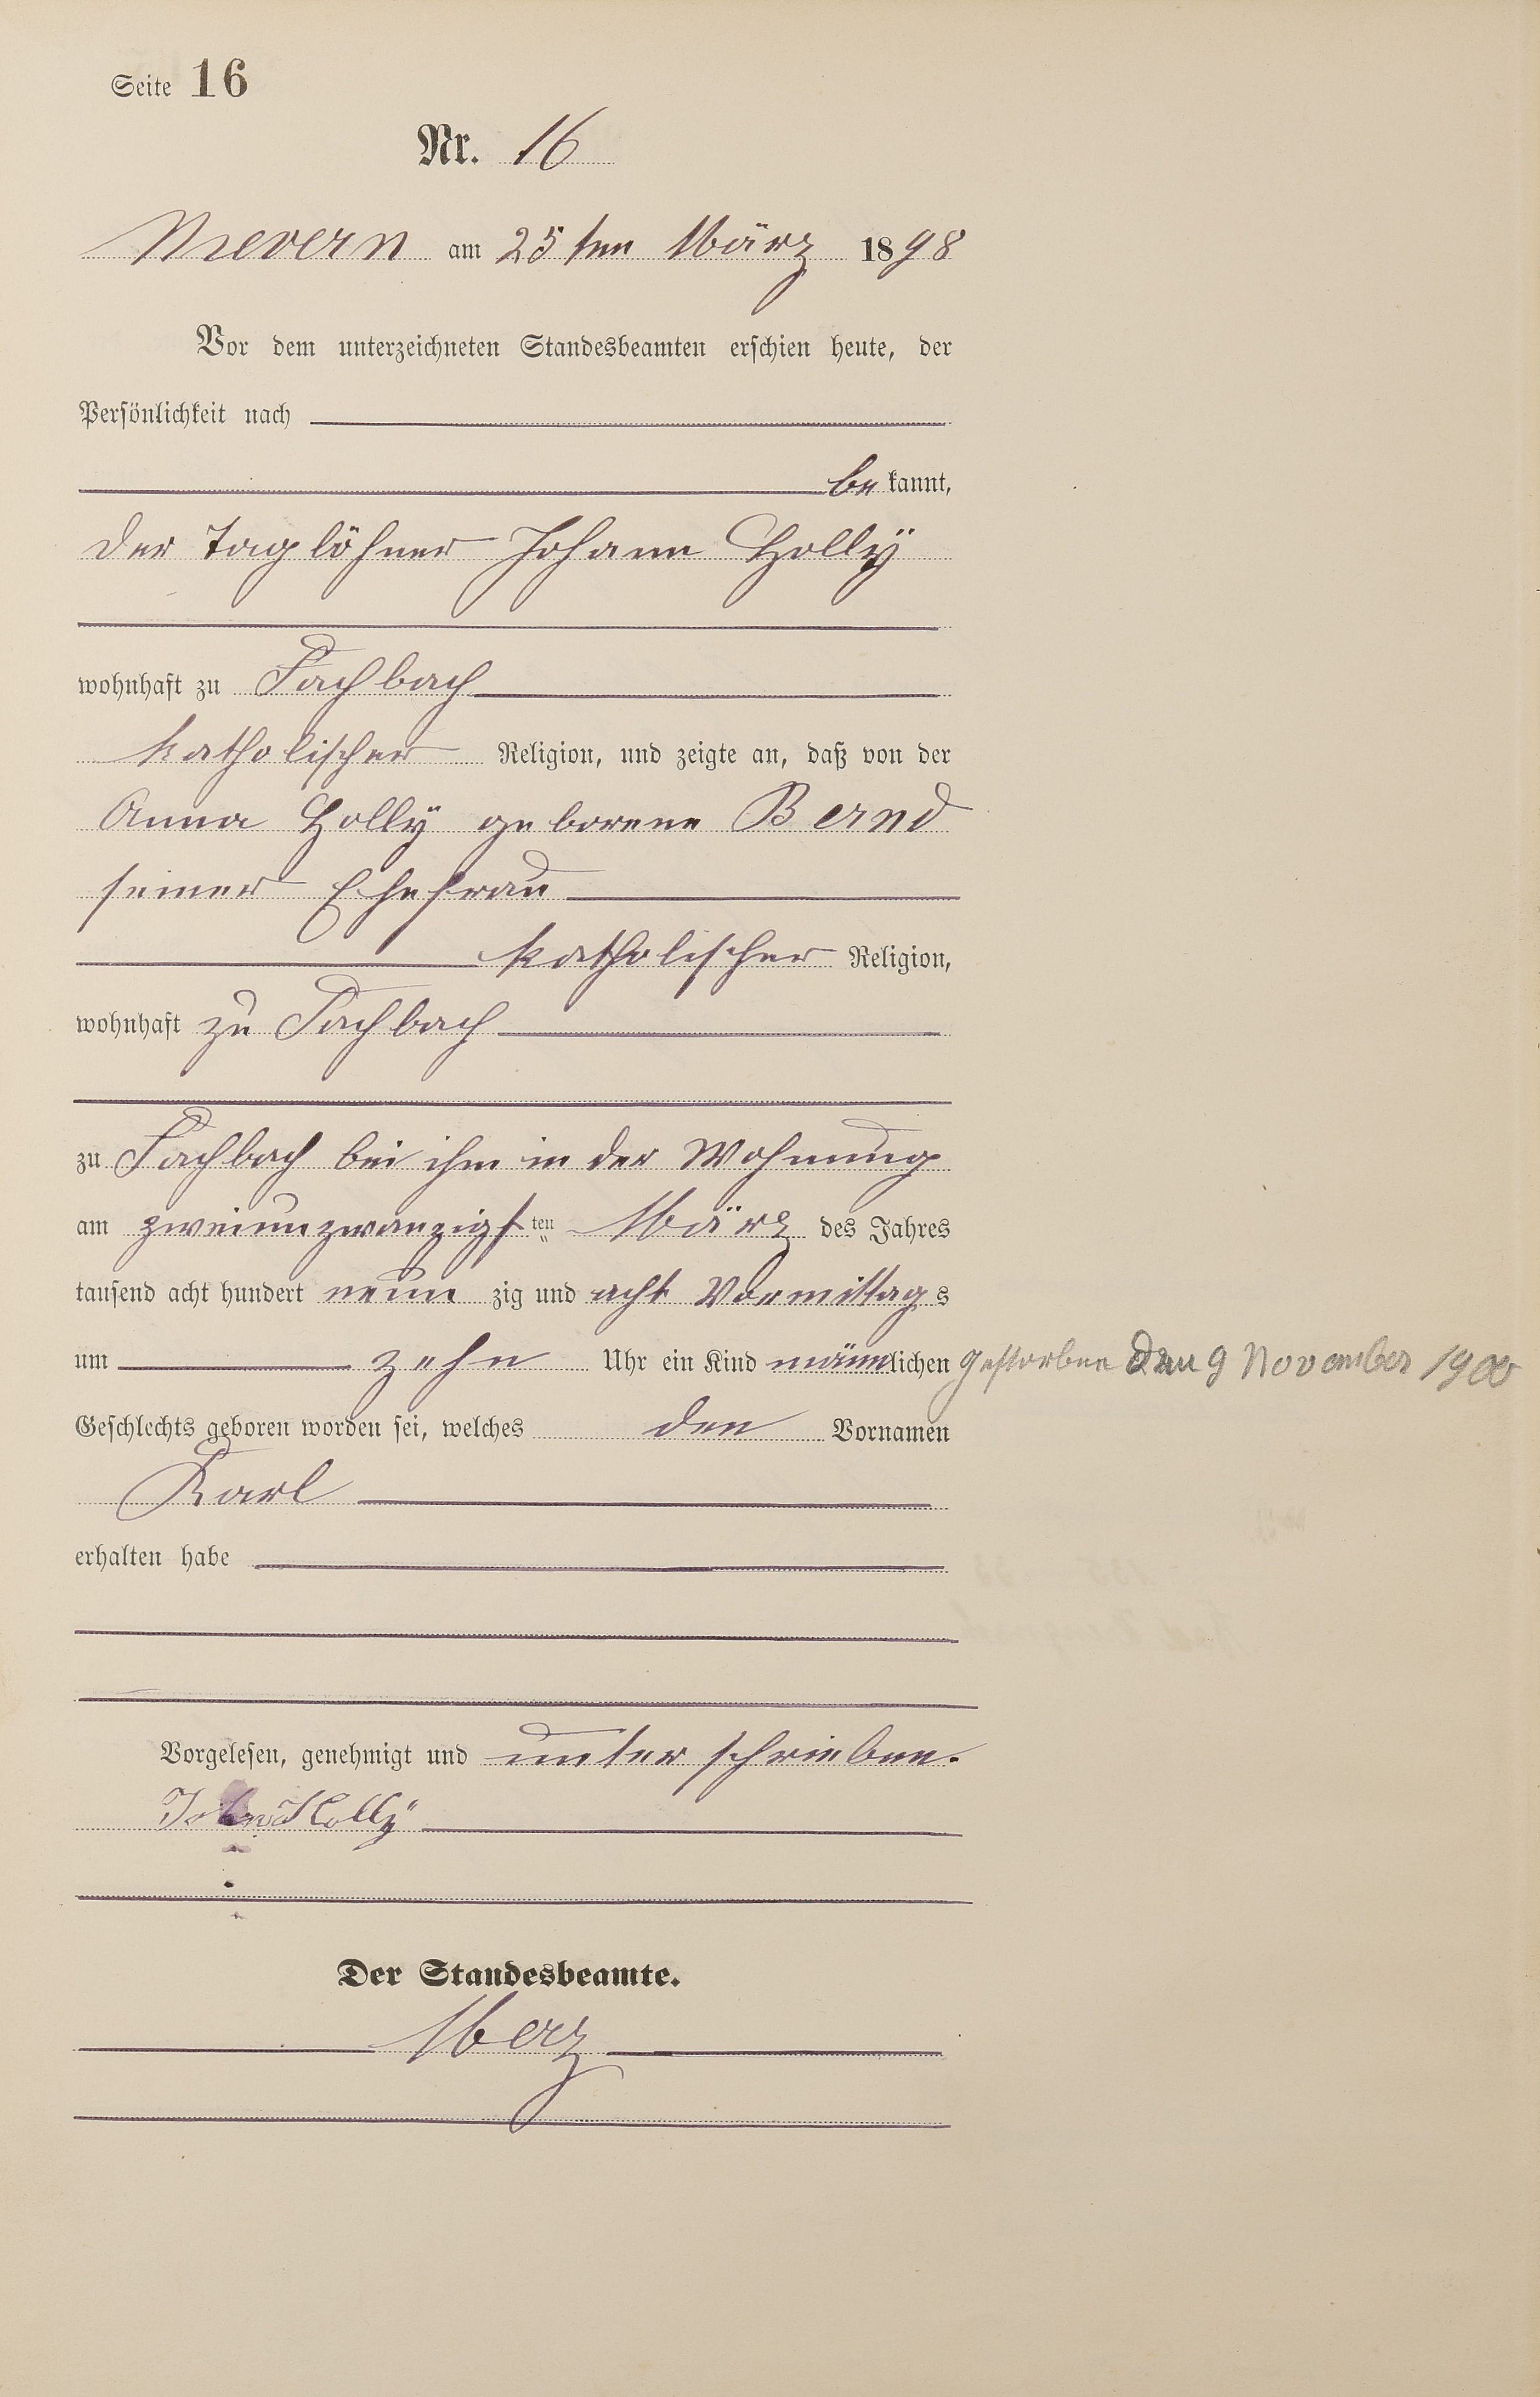 Seite 16
Nr. 16
Nievern am 25ten März 1898
Vor dem unterzeichneten Standesbeamten erschien heute, der
Persönlichkeit nach
bekannt,
der Taglöhner Johann Hollÿ
wohnhaft zu Fachbach
katholischer Religion, und zeigte an, daß von der
Anna Hollÿ geborene Bernd
seiner Ehefrau
katholischer Religion,
wohnhaft zu Fachbach
zu Fachbach bei ihm in der Wohnung
am zweiunzwanzigsten März des Jahres
tausend acht hundert neunzig und acht Vormittags
um zehn Uhr ein Kind männlichen
gestorben den 9 November 1900
Geschlechts geboren worden sei, welches den Vornamen
Karl
erhalten habe
Vorgelesen, genehmigt und unterschrieben.
Hollÿ
Der Standesbeamte.
Merz